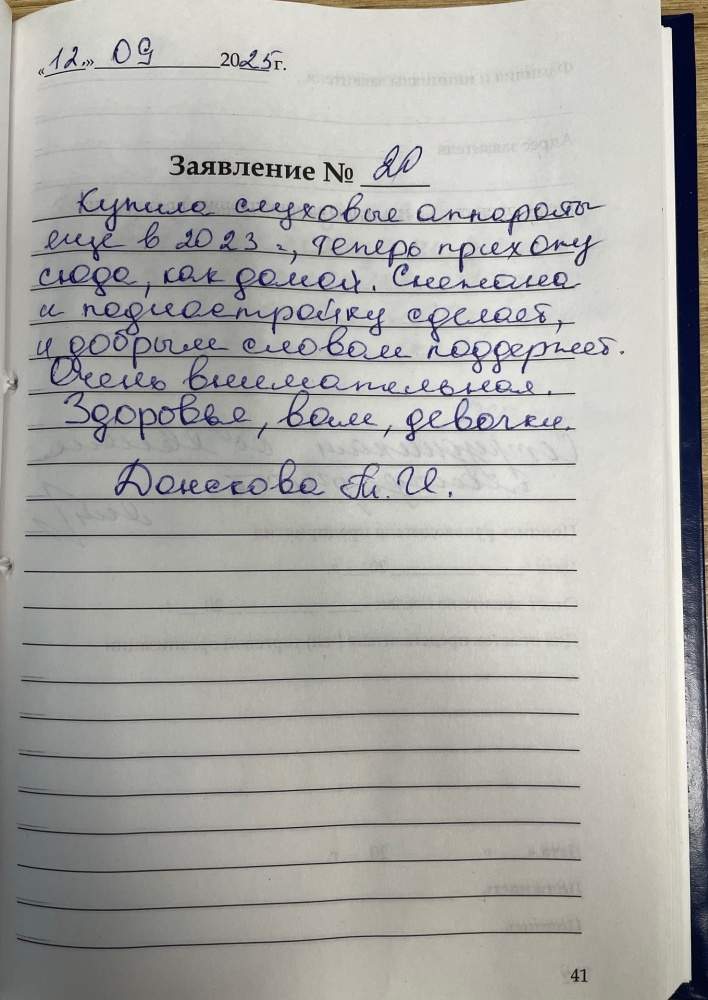 «12.» 09 2025г.
Заявление № 20
Купила слуховые аппараты
еще в 2023 г., теперь прихожу
сюда, как домой. Снежана
и поднастройку сделает,
и добрым словом поддержет.
Очень внимательная.
Здоровья, вам, девочки.
Донскова Т. И.
41